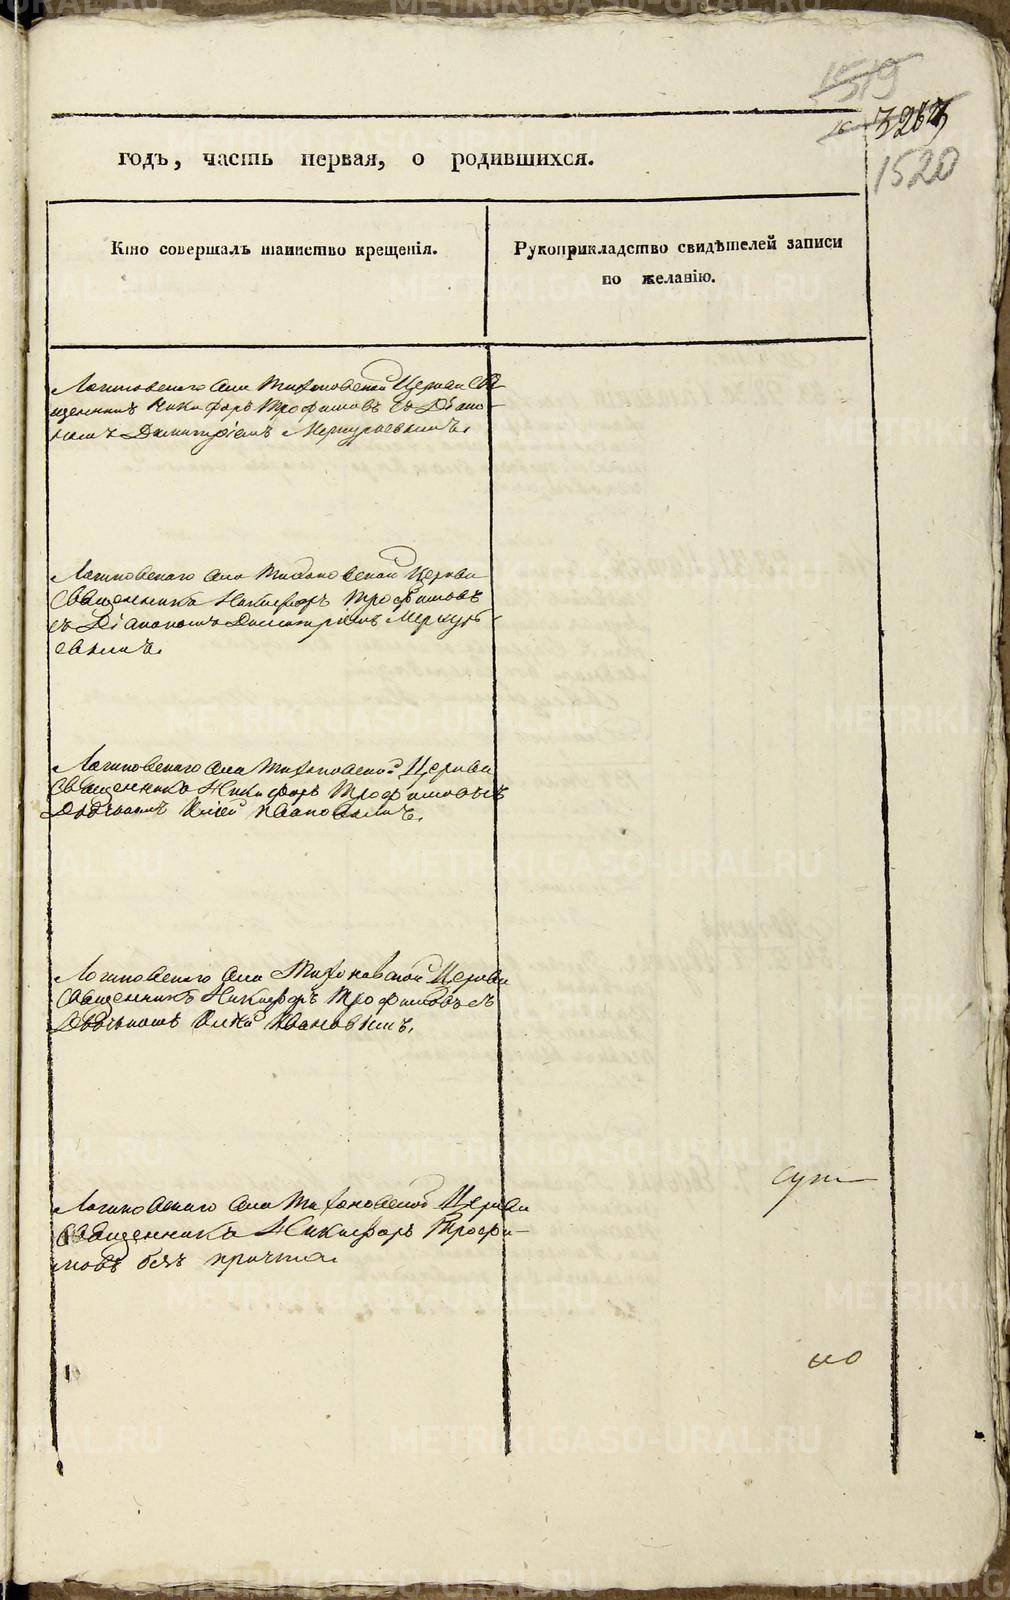 1519
3263
1520
годъ, часть первая, о родившихся.
Кто совершалъ таинство крещенія.
Рукоприкладство свидѣтелей записи
по желанію.
Логиновского села Тихоновской Церкви Свя
щенникъ Никифоръ Трофимовъ съ Діако-
номъ Димитріемъ Меркурьевымъ.
Логиновского села Тихоновской Церкви
Священникъ Никифоръ Трофимовъ
съ Діакономъ Димитріемъ Меркурь
евымъ.
Логиновского села Тихоновской Церкви
Священникъ Никифоръ Трофимовъ съ
Дьячкомъ Ивановымъ.
Логиновского села Тихоновской Церкви
Священникъ Никифоръ Трофимовъ съ
Дьячкомъ Ивановымъ.
Логиновского села Тихоновской Церкви
Священникъ Никифоръ Трофи-
мовъ безъ причта.
METRIKI.GASO-URAL.RU